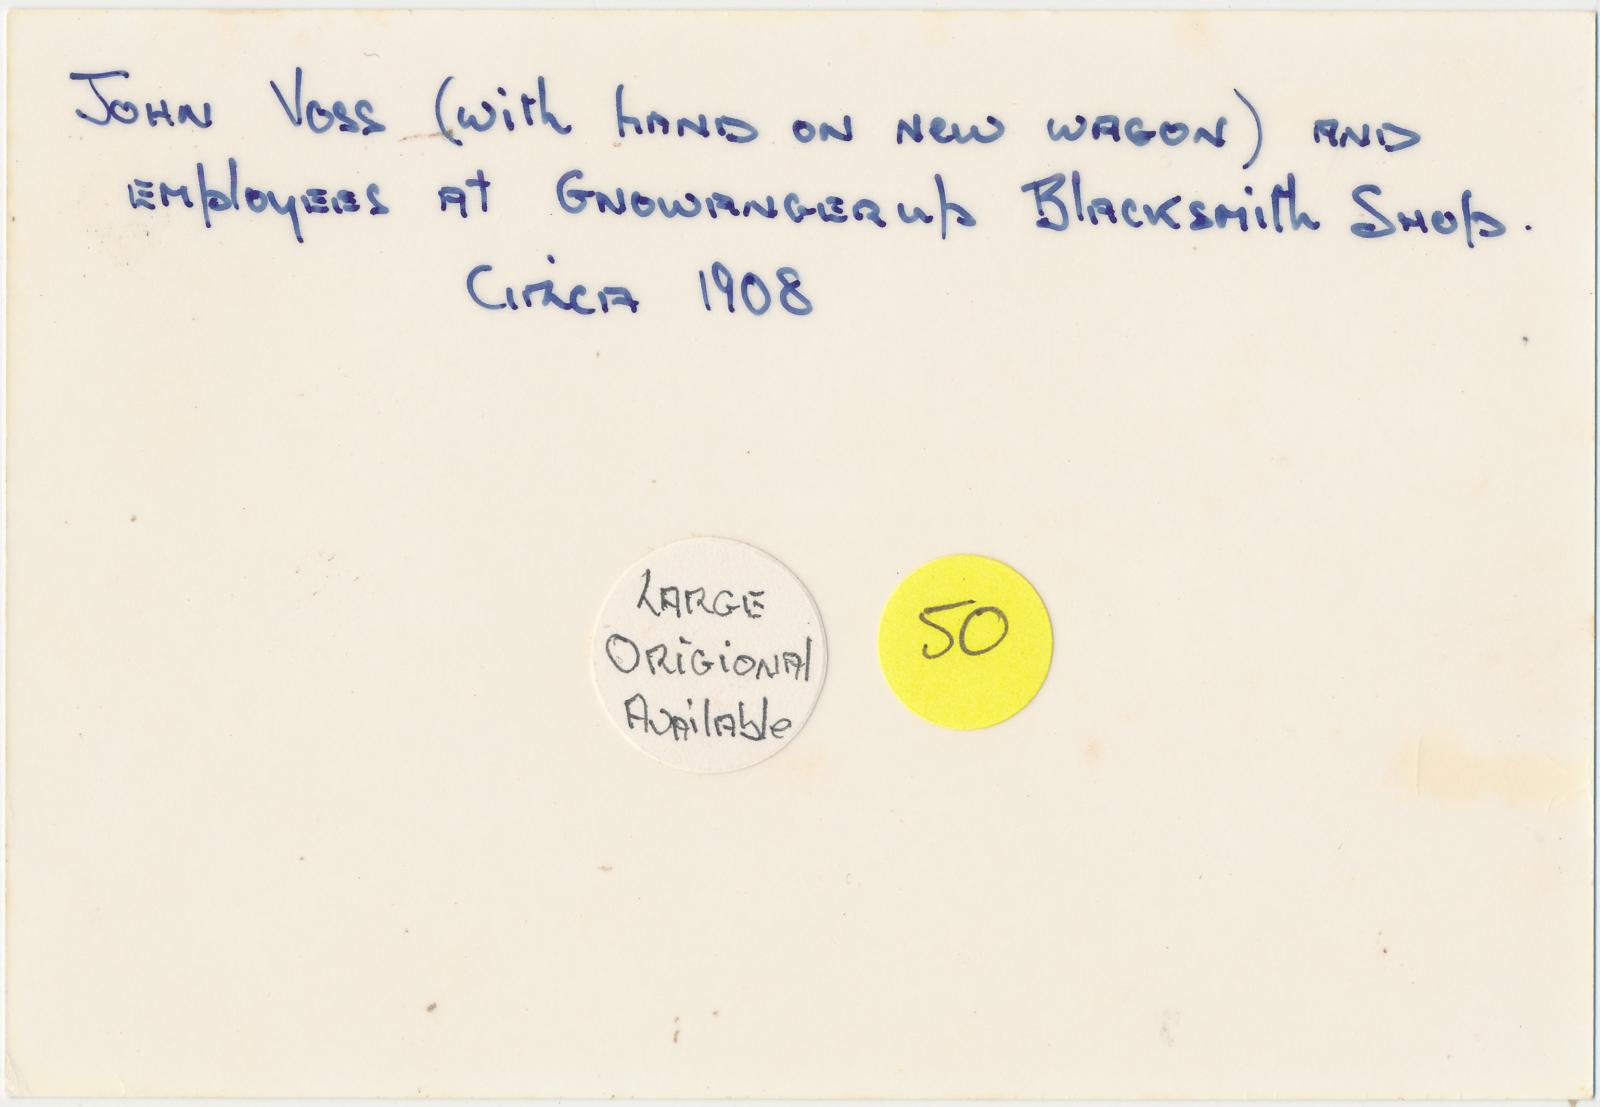 John Voss (with hand on new wagon) and
employees at Gnowangerup Blacksmith Shop.
Circa 1908
Large
Origional
Available
50